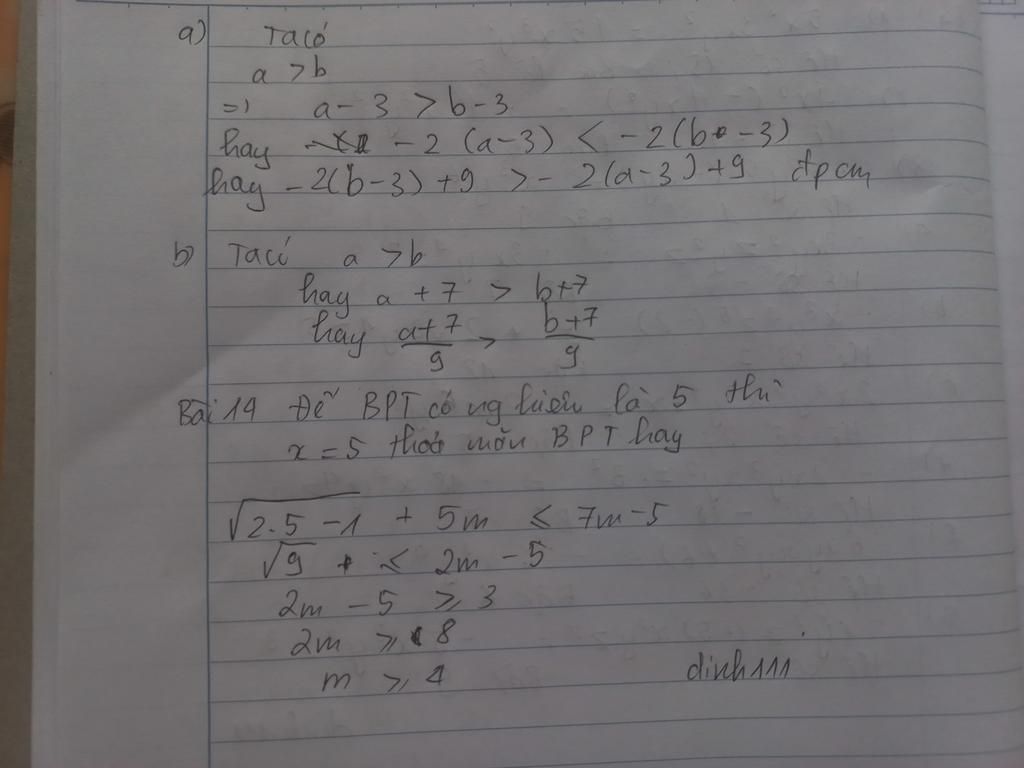 a) Ta có
a > b
=> a - 3 > b - 3
hay - 2 (a - 3) < - 2 (b - 3)
hay - 2(b - 3) + 9 > - 2(a - 3) + 9 đpcm
b) Ta có a > b
hay a + 7 > b + 7
hay \frac{a+7}{9} > \frac{b+7}{9}
Bài 14 Để BPT có nghiệm là 5 thì
x = 5 thoả mãn BPT hay
\sqrt{2.5 - 1} + 5m ≤ 7m - 5
\sqrt{9} ≤ 2m - 5
2m - 5 ≥ 3
2m ≥ 8
m ≥ 4
dinh111